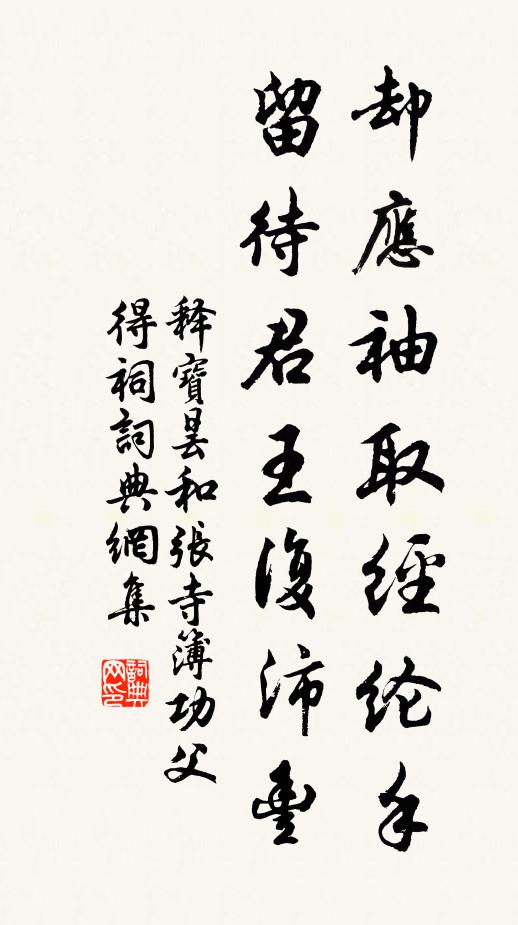 却應袖取經綸手
留待君王復沛豐
释寶曇和張寺簿功父
得祠詞典網集
詞典网印